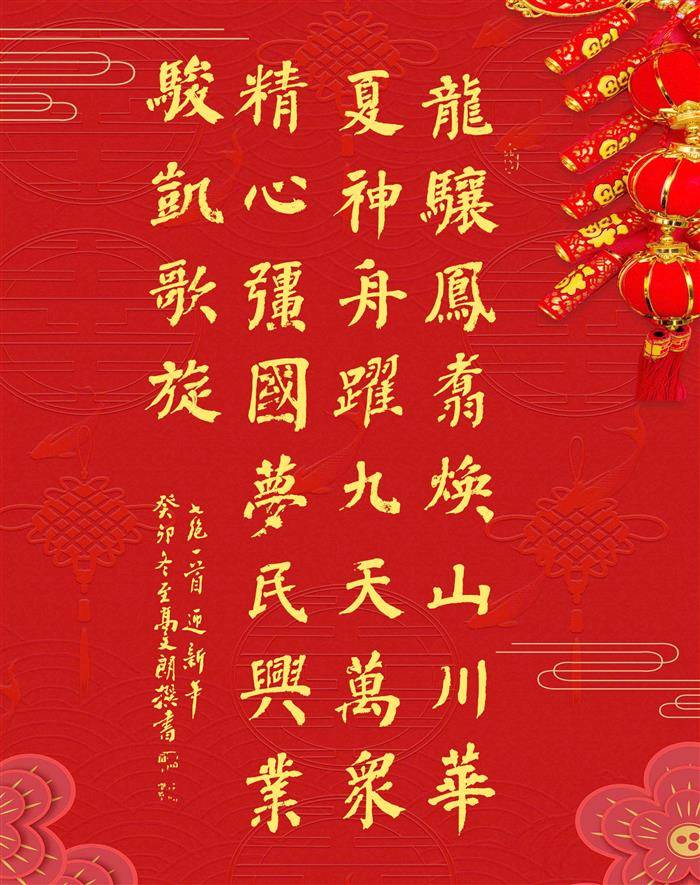 龍驤鳳翥煥山川華
夏神舟躍九天萬眾
精心彊國夢民興業
駿凱歌旋
七絕一首迎新年
癸卯冬至高文朗撰書